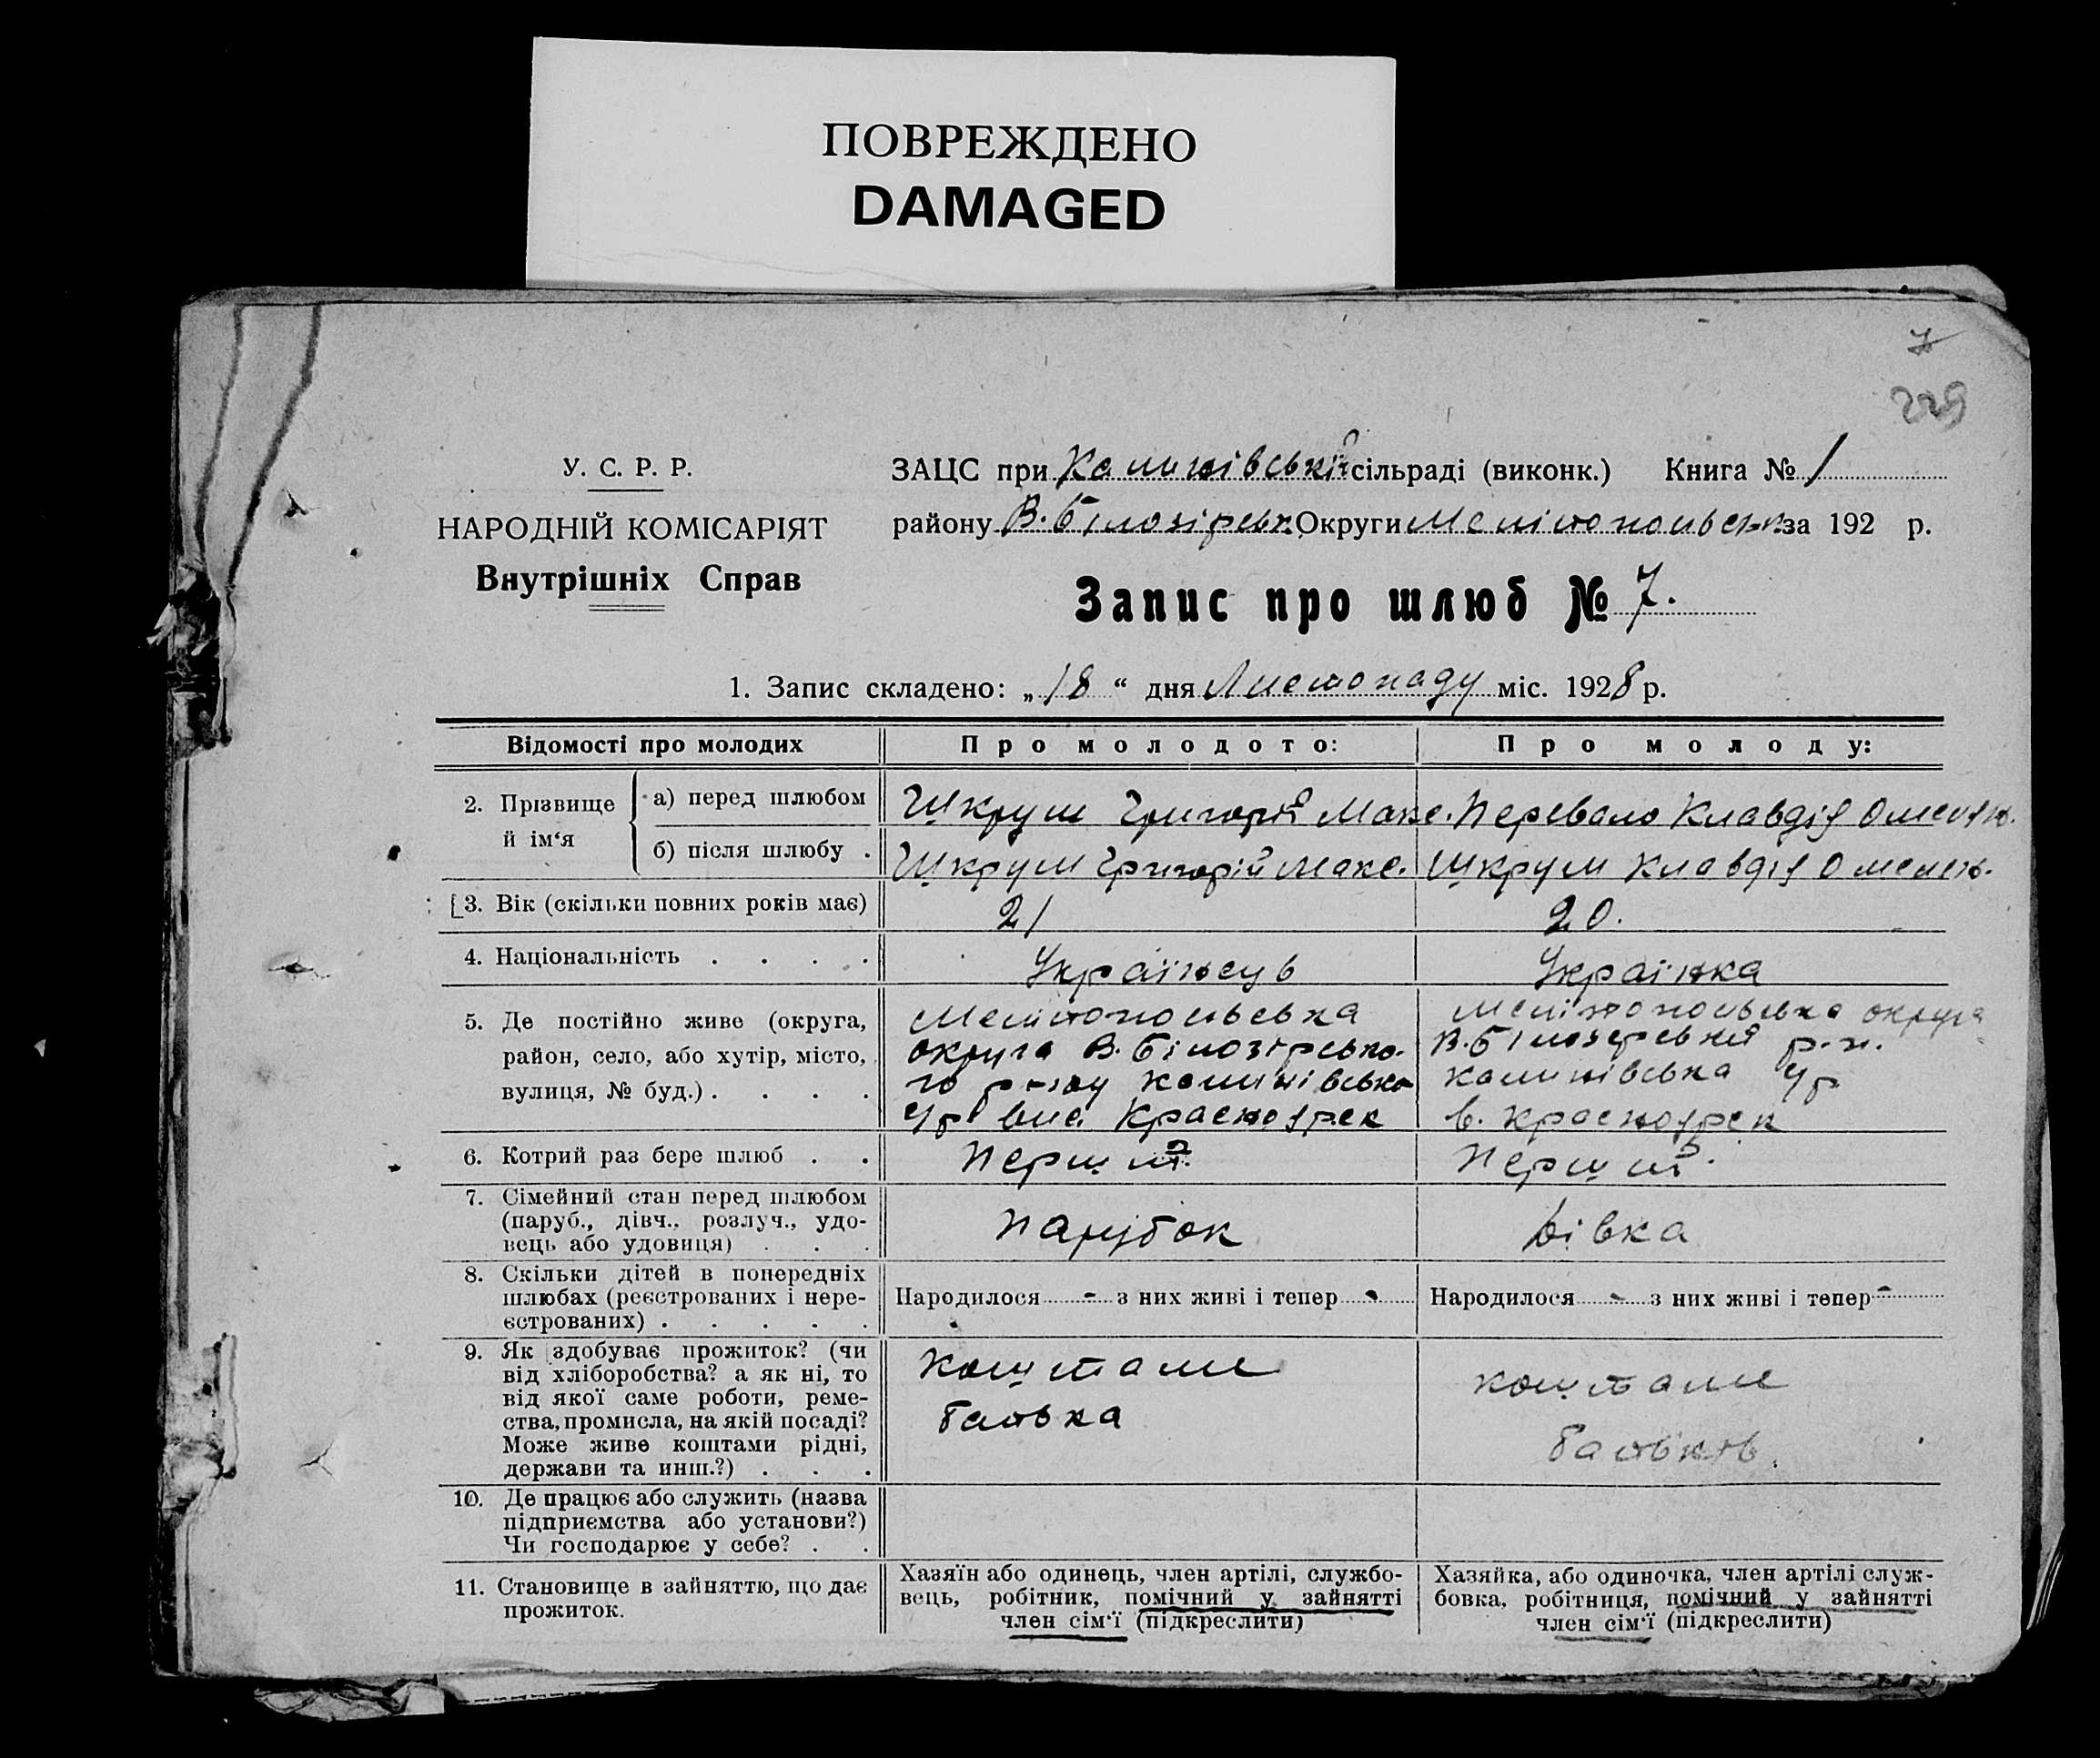 ПОВРЕЖДЕНО
DAMAGED
7
229
У. С. Р. Р.
НАРОДНІЙ КОМІСАРІЯТ
Внутрішніх Справ
ЗАЦС при Калинівській сільраді (виконк.) Книга № 1
району В. Білозірськ. Округи Мелітопольськ. за 192 р.
Запис про шлюб № 7.
1. Запис складено: „18“ дня Листопаду міс. 1928 р.
Відомості про молодих
Про молодого:
Про молоду:
2. Прізвище й ім‘я
а) перед шлюбом
Шкрум Григорій Макс.
Перевало Клавдія Омелян.
б) після шлюбу .
Шкрум Григорій Макс.
Шкрум Клавдія Омелян.
3. Вік (скільки повних років має)
21
20.
4. Національність . . . .
Українець
Українка
5. Де постійно живе (округа,
район, село, або хутір, місто,
вулиця, № буд.) . . . .
Мелітопольська
округа В. Білозірсько-
го р-ну Калинівська
с/р вис. Красноярск
Мелітопольська округа
В. Білозерський р-н.
Калинівська с/р
в. Красноярск
6. Котрий раз бере шлюб . .
Перший.
Перший.
7. Сімейний стан перед шлюбом
(паруб., дівч., розлуч., удо-
вець або удовиця) . . .
Парубок
Дівка
8. Скільки дітей в попередніх
шлюбах (реєстрованих і нере-
єстрованих) . . . . .
Народилося - з них живі і тепер -
Народилося - з них живі і тепер -
9. Як здобуває прожиток? (чи
від хліборобства? а як ні, то
від якої саме роботи, реме-
ства, промисла, на якій посаді?
Може живе коштами рідні,
держави та инш.?) . . .
Коштами
батька
коштами
батьків.
10. Де працює або служить (назва
підприємства або установи?)
Чи господарює у себе? . .
11. Становище в зайняттю, що дає
прожиток.
Хазяїн або одинець, член артілі, службо-
вець, робітник, помічний у зайнятті
член сім‘ї (підкреслити)
Хазяйка, або одиночка, член артілі служ-
бовка, робітниця, помічний у зайнятті
член сім‘ї (підкреслити)